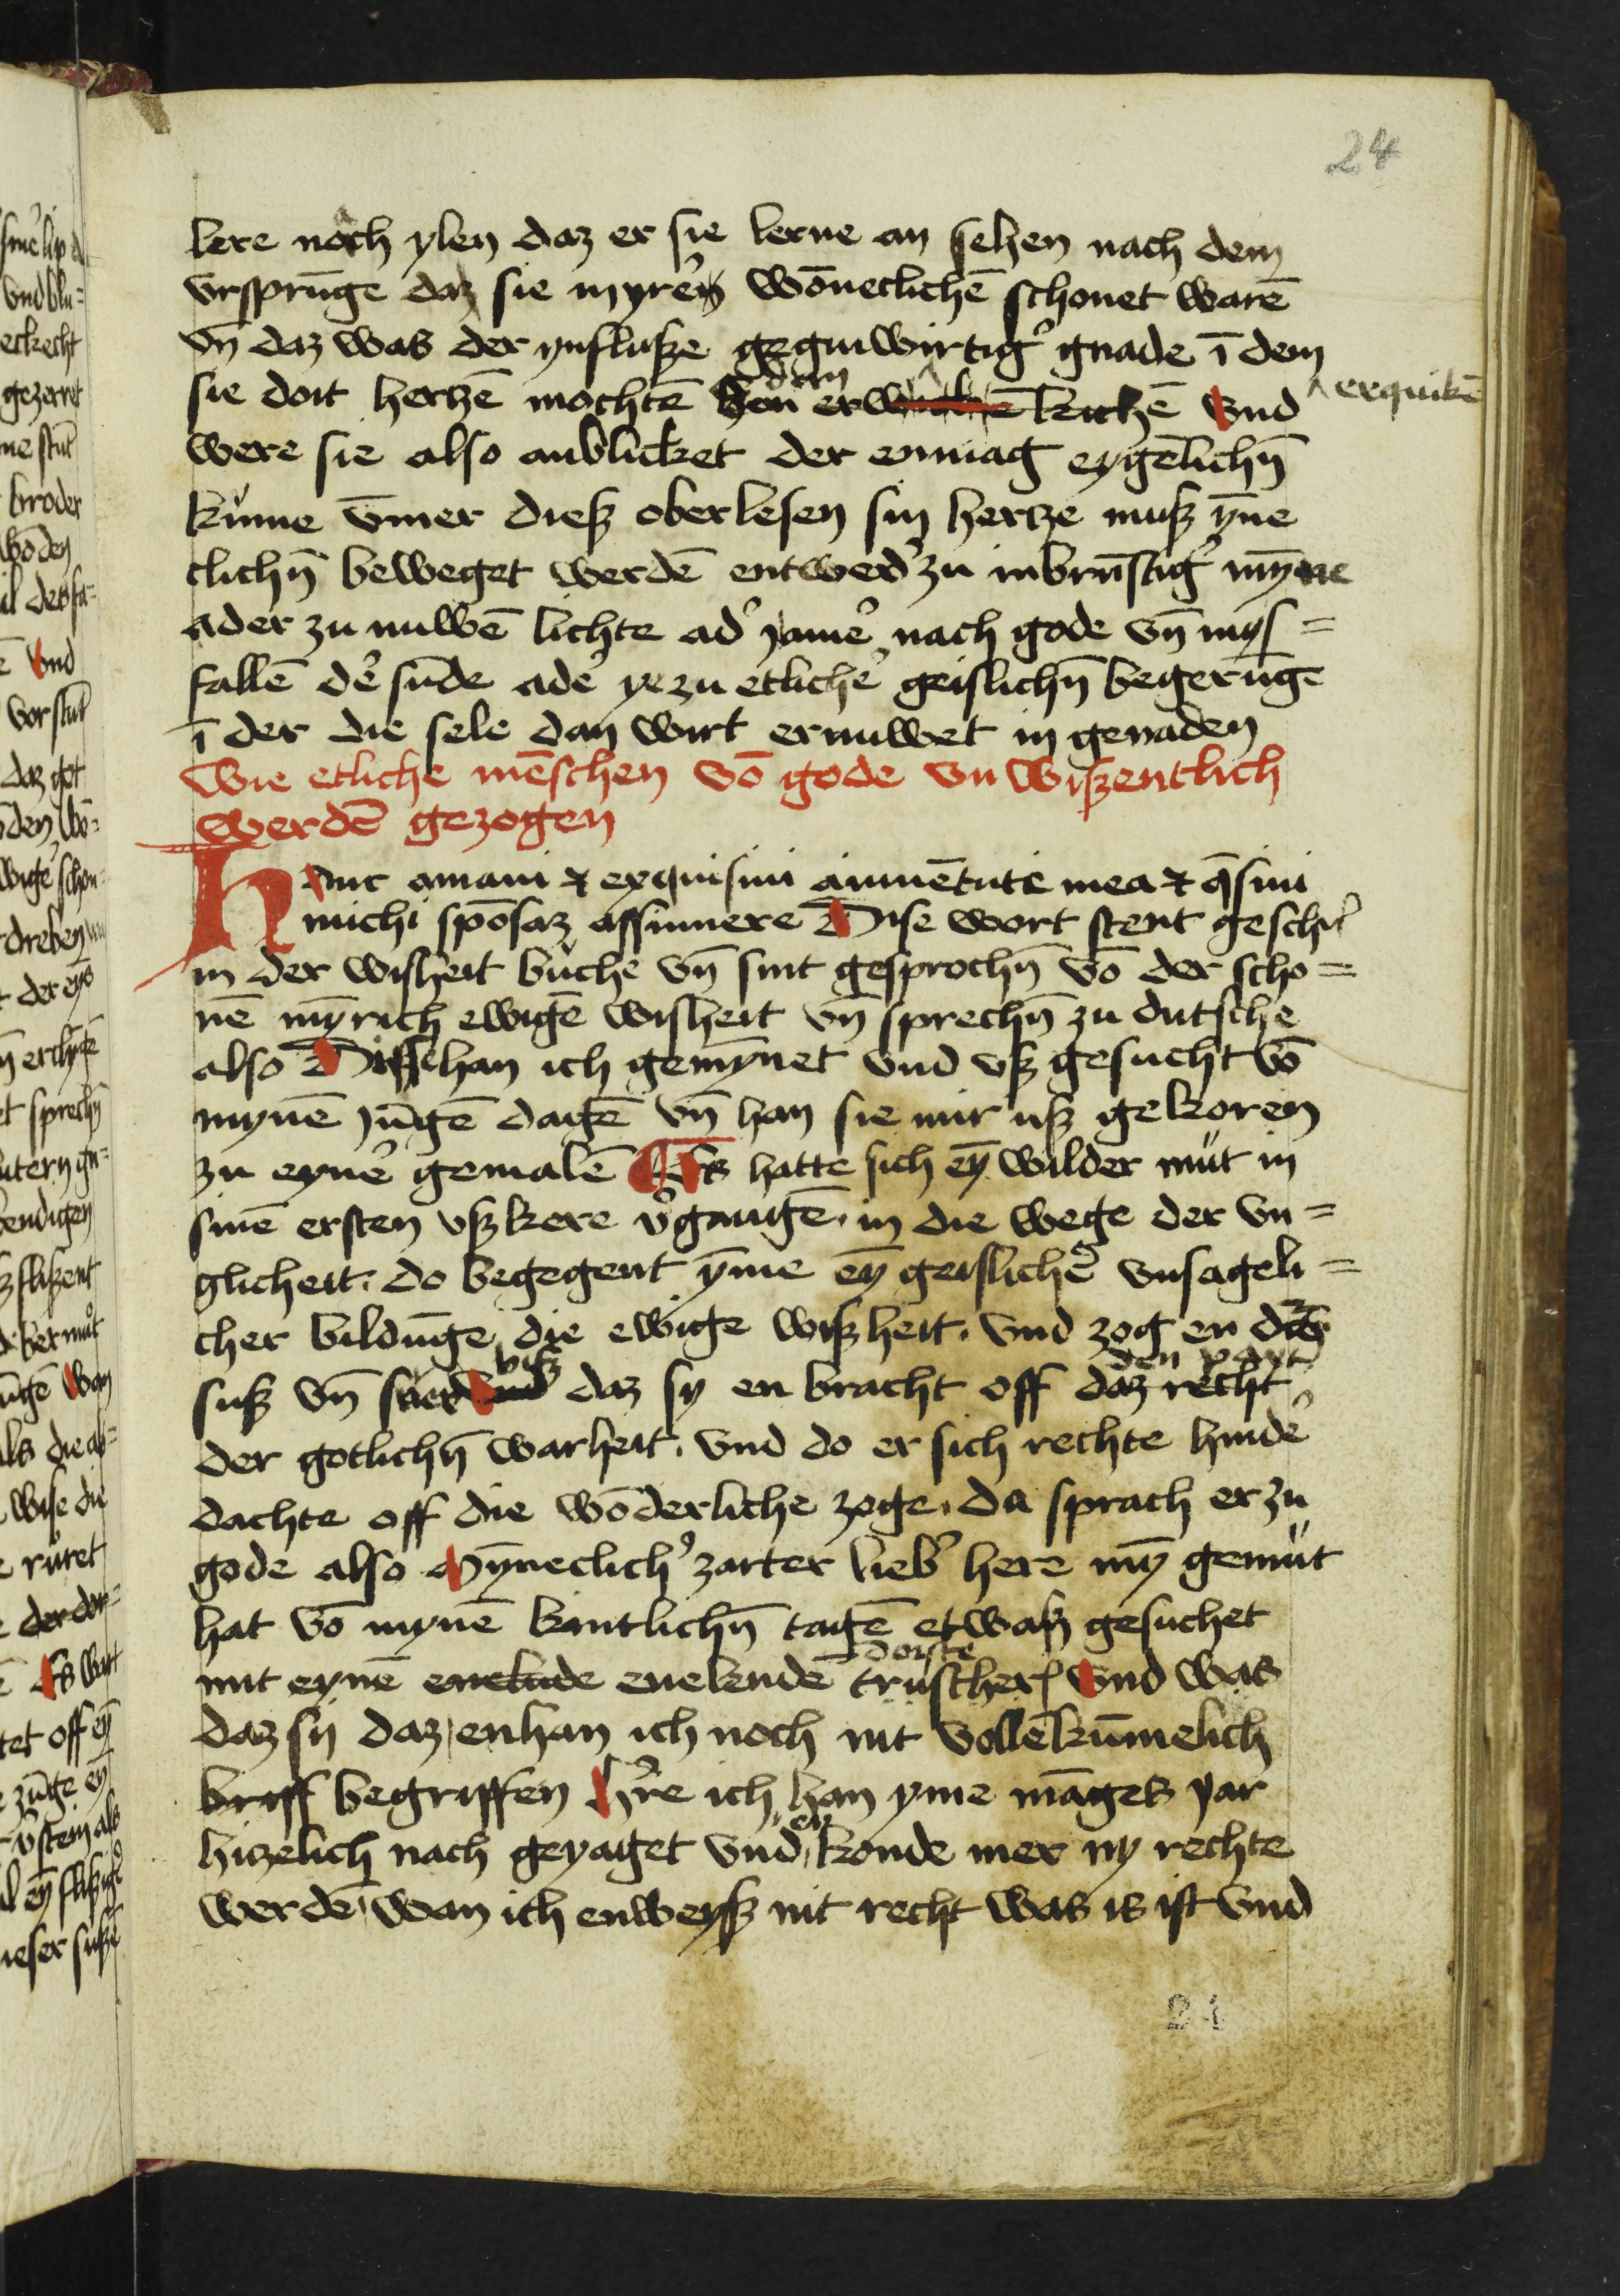 24
lere noch ylen daz er sie lerne an sehen nach dem
vrsprūge daz sie in yrer wōneclichē schonet warē
vn̄ daz was der ynfluße geguwirtigʼ gnade ī dem
dem
sie doit hertzē mochtē erkickē vnd
erquikē
were sie also anblicket der enmag eygēlichn̄
kume v̄mer dieß oberlesen sin hertze muß yne
clichn̄ beweget werdē entwedʼ zu inbrūstigʼ my̅ne
ader zu nuwē lichte adʼ jamʼ nach gode vn̄ mys=
fallē dʼ sunde adʼ ye zu etlichʼ geislichn̄ begerūge
ī der die sele dan wirt ernuwet in genaden
Wie etliche mēschen vō gode vn wißentlich
werdē gezogen
Hanc amaui & exquisiui a iuuētute mea & q̄siui
michi spōsaz assumere Dise wort stent geschrʼ
in der wisheit buche vn̄ sint gesprochn̄ vō der scho=
nē my̅rich ewigē wisheit vn̄ sprechn̄ zu dutsche
also Disse han ich gemy̅net vnd vß gesucht vō
mynē jūgē dagē vn̄ han sie mir uß gekoren
zu eynʼ gemalē Es hatte sich ey̅ wilder mut in
sinē ersten vßkere vʼgangē in die wege der vn=
glicheit. do begegent y̅me ey̅ geislichē vnsageli=
cher bildūge die ewige wißheit. vnd zog en
biß
den part
suß vn̄ suer vnd daz sy en bracht off daz recht
der gotlichn̄ warheit. vnd do er sich rechte hindʼ
dachte off die wōderliche zoge. da sprach er zu
gode also My̅neclichʼ zarter liebʼ here my̅ gemut
hat vō mynē kintlichn̄ tagē etwaß gesuchet
dorste
mit eynē enelude enelendē truscher vnd was
daz sy daz enhan ich noch nit vollēkūmelich
briff begriffen hʼre ich han yme māges yar
en
hizelich nach geyaget vnd konde mer ny rechte
werdē wan ich enweyß nit recht was is ist vnd
21